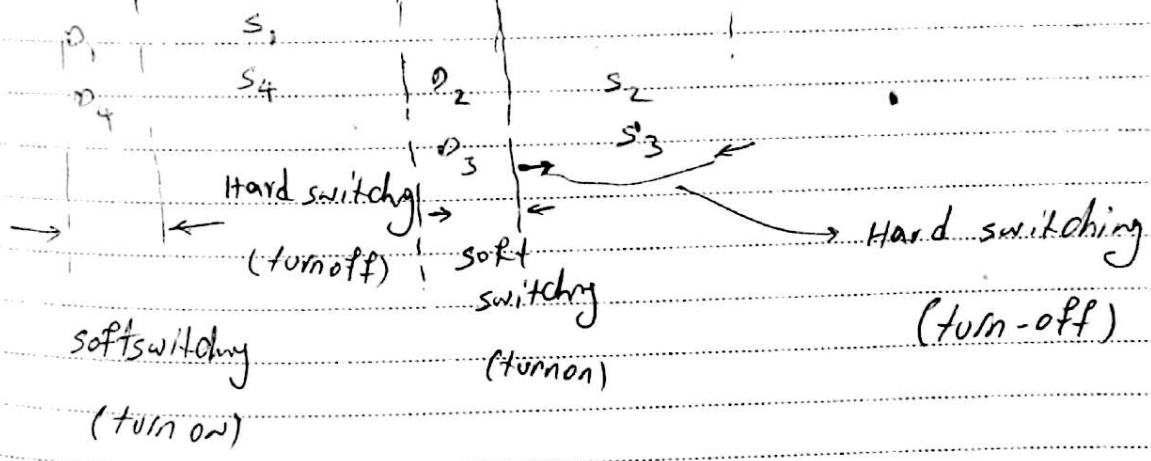 D1 S1
D4 S4 D2 S2
D3 S3
Hard switchg
(turnoff) soft
switchng
Hard switching
(turn-off)
softswitchng
(turnon)
(turn on)